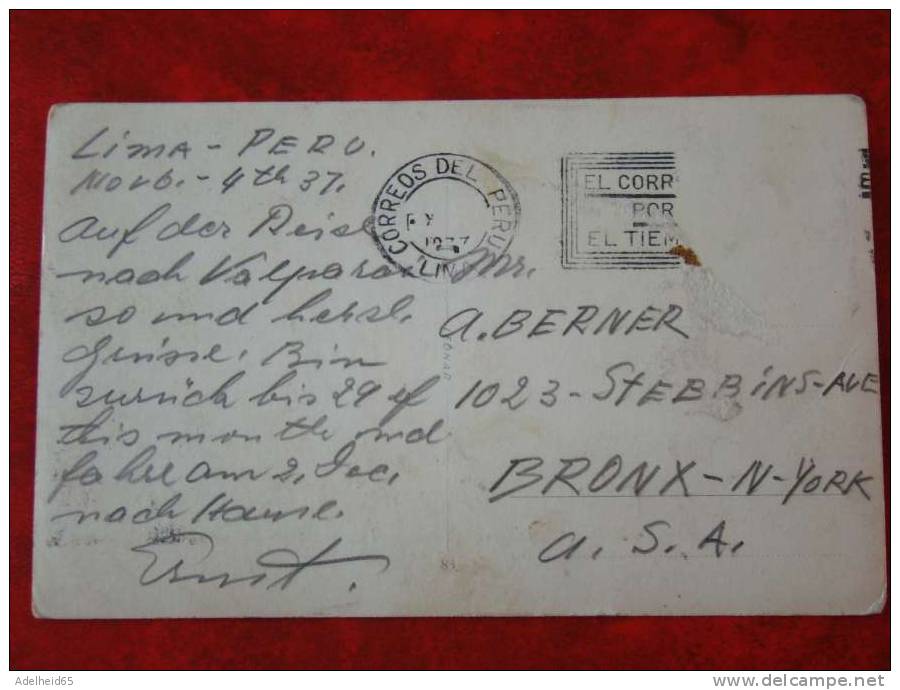 Lima - PERU.
Novb. - 4th 37.
Auf der Reise
nach Valparai
so und herzl.
Grüsse. Bin
zurück bis 29 of
this month und
fahre am 2. Dec.
nach Hause.
Ernst.
CORREOS DEL PERU
1937
LIM
EL CORR
POR
EL TIEM
Mr.
A. BERNER
1023 - STEBBINS - AVE
BRONX - N - YORK
U. S. A.
83
Adelheid65
www.delcampe.net